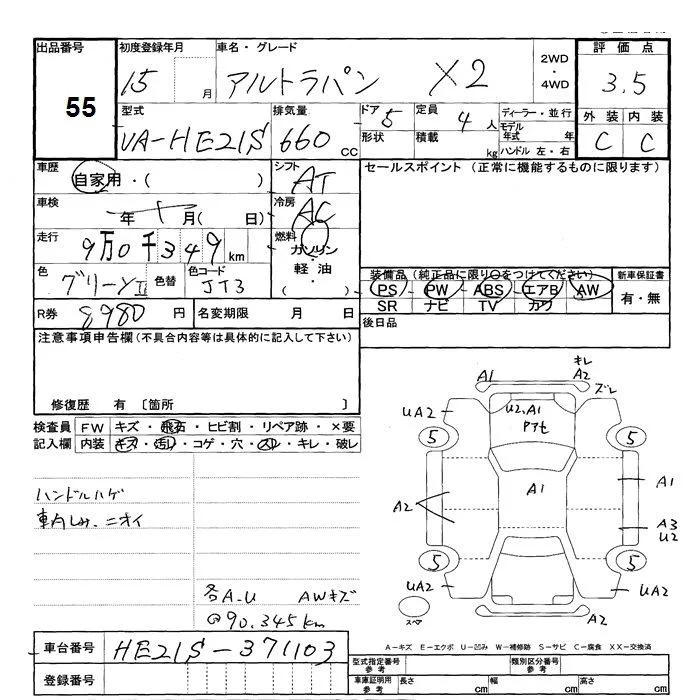 出品番号 初度登録年月 車名・グレード 2WD・4WD 評価点
55 15 月 アルトラパン X2 3.5
型式 排気量 ドア 5 定員 4 人 ディーラー・並行 外装 内装
UA-HE21S 660 cc 形状 積載 kg モデル年式 年 C C
ハンドル 左・右
車歴 自家用・( ) シフト AT セールスポイント (正常に機能するものに限ります)
車検 年 月( 日) 冷房 AC
走行 9万0千349km 燃料 ガソリン・軽油・( )
色 グリーンII 色替 色コード JT3
装備品 (純正品に限り○をつけてください) 新車保証書
PS PW ABS エアB AW 有・無
SR ナビ TV カワ
R券 8980 円 名変期限 月 日 後日品
注意事項申告欄 (不具合内容等は具体的に記入して下さい)
修復歴 有 [箇所 ]
検査員記入欄 FW キズ・飛石・ヒビ割・リペア跡・×要
内装 キズ・汚れ・コゲ・穴・スレ・キレ・破レ
ハンドルハゲ
車内しみ・ニオイ
各A-U AWキズ
@90.345km
キレ
A1 A2 ズレ
UA2 U2.A1 UA2
アセ
5 5
A1 A1
A2 A3
U2
5 5
UA2 UA2
スペア A2
A-キズ E-エクボ U-凹み W-補修跡 S-サビ C-腐食 XX-交換済
車台番号 HE21S-371103
登録番号
型式指定番号 参考 類別区分番号 参考
車庫証明用 参考 長さ cm 幅 cm 高さ cm